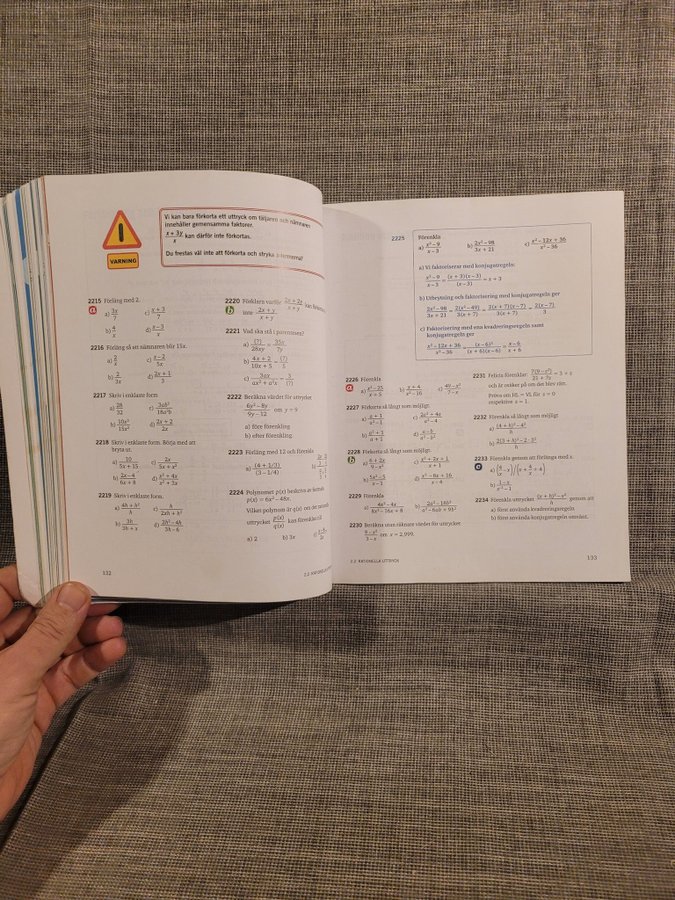 Vi kan bara förkorta ett uttryck om täljaren och nämnaren
innehåller gemensamma faktorer.
(x + 3y)/x kan därför inte förkortas.
Du frestas väl inte att förkorta och stryka x-termerna?
VARNING
2215 Förläng med 2.
a
a) 3x/7 c) (x + 3)/7
b) 4/x d) (x − 3)/x
2216 Förläng så att nämnaren blir 15x.
a) 2/x c) (x − 2)/5x
b) 2/3x d) (2x + 1)/3
2217 Skriv i enklare form
a) 28/32 c) 3ab²/18a²b
b) 10x³/15x² d) (2x + 2)/2x
2218 Skriv i enklare form. Börja med att
bryta ut.
a) 10/(5x + 15) c) 2x/(5x + x²)
b) (2x − 4)/(6x + 8) d) (x² + 4x)/(x² + 3x)
2219 Skriv i enklare form.
a) (4h + h²)/h c) h/(2xh + h²)
b) 3h/(3h + x) d) (2h² − 4h)/(3h − 6)
132
2220 Förklara varför (2x + 2y)/(x + y) kan
b
inte (2x + y)/(x + y)
2221 Vad ska stå i parentesen?
a) (?)/28xy = 35x/7y
b) (4x + 2)/(10x + 5) = (?)/5
c) 3ax/(ax² + a²x) = 3/(?)
2222 Beräkna värdet för uttrycket
(6y² − 8y)/(9y − 12) om y = 9
a) före förenkling
b) efter förenkling.
2223 Förläng med 12 och förenkla
a) (4 + 1/3)/(3 − 1/4)
2224 Polynomet p(x) beskrivs av formeln
p(x) = 6x² − 48x.
Vilket polynom är q(x) om det
uttrycket p(x)/q(x) kan förenklas till
a) 2 b) 3x c) (x − 8)/2x
2.2 RATIONELLA
2225 Förenkla
a) (x² − 9)/(x − 3) b) (2x² − 98)/(3x + 21) c) (x² − 12x + 36)/(x² − 36)
a) Vi faktoriserar med konjugatregeln:
(x² − 9)/(x − 3) = (x + 3)(x − 3)/(x − 3) = x + 3
b) Utbrytning och faktorisering med konjugatregeln ger
(2x² − 98)/(3x + 21) = 2(x² − 49)/3(x + 7) = 2(x + 7)(x − 7)/3(x + 7) = 2(x − 7)/3
c) Faktorisering med ena kvadreringsregeln samt
konjugatregeln ger
(x² − 12x + 36)/(x² − 36) = (x − 6)²/(x + 6)(x − 6) = (x − 6)/(x + 6)
2226 Förenkla
a
a) (x² − 25)/(x + 5) b) (x + 4)/(x² − 16) c) (49 − x²)/(7 − x)
2227 Förkorta så långt som möjligt.
a) (x + 1)/(x² − 1) c) (2x² + 4x)/(x² − 4)
b) (a² + 1)/(a + 1) d) (a − b)/(a² − b²)
2228 Förkorta så långt som möjligt.
b
a) (6 + 2x)/(9 − x²) c) (x² + 2x + 1)/(x + 1)
b) (5x² − 5)/(x − 1) d) (x² − 8x + 16)/(x − 4)
2229 Förenkla
a) (4x² − 4x)/(8x² − 16x + 8) b) (2a² − 18b²)/(a² − 6ab + 9b²)
2230 Beräkna utan räknare värdet för uttrycket
(9 − x²)/(3 − x) om x = 2,999.
2.2 RATIONELLA UTTRYCK
2231 Felicia förenklar 7(9 − x²)/(21 + 7x) = 3 + x
och är osäker på om det blev rätt.
Pröva om HL = VL för x = 0
respektive x = 1.
2232 Förenkla så långt som möjligt
a) ((4 + h)² − 4²)/h
b) (2(3 + h)² − 2 · 3²)/h
2233 Förenkla genom att förlänga med x.
c
a) (4/x − x)/(x + 4/x + 4)
b) (1 − x)/(1/x − x)
2234 Förenkla uttrycket ((x + h)² − x²)/h genom att
a) först använda kvadreringsregeln
b) först använda konjugatregeln omvänt.
133